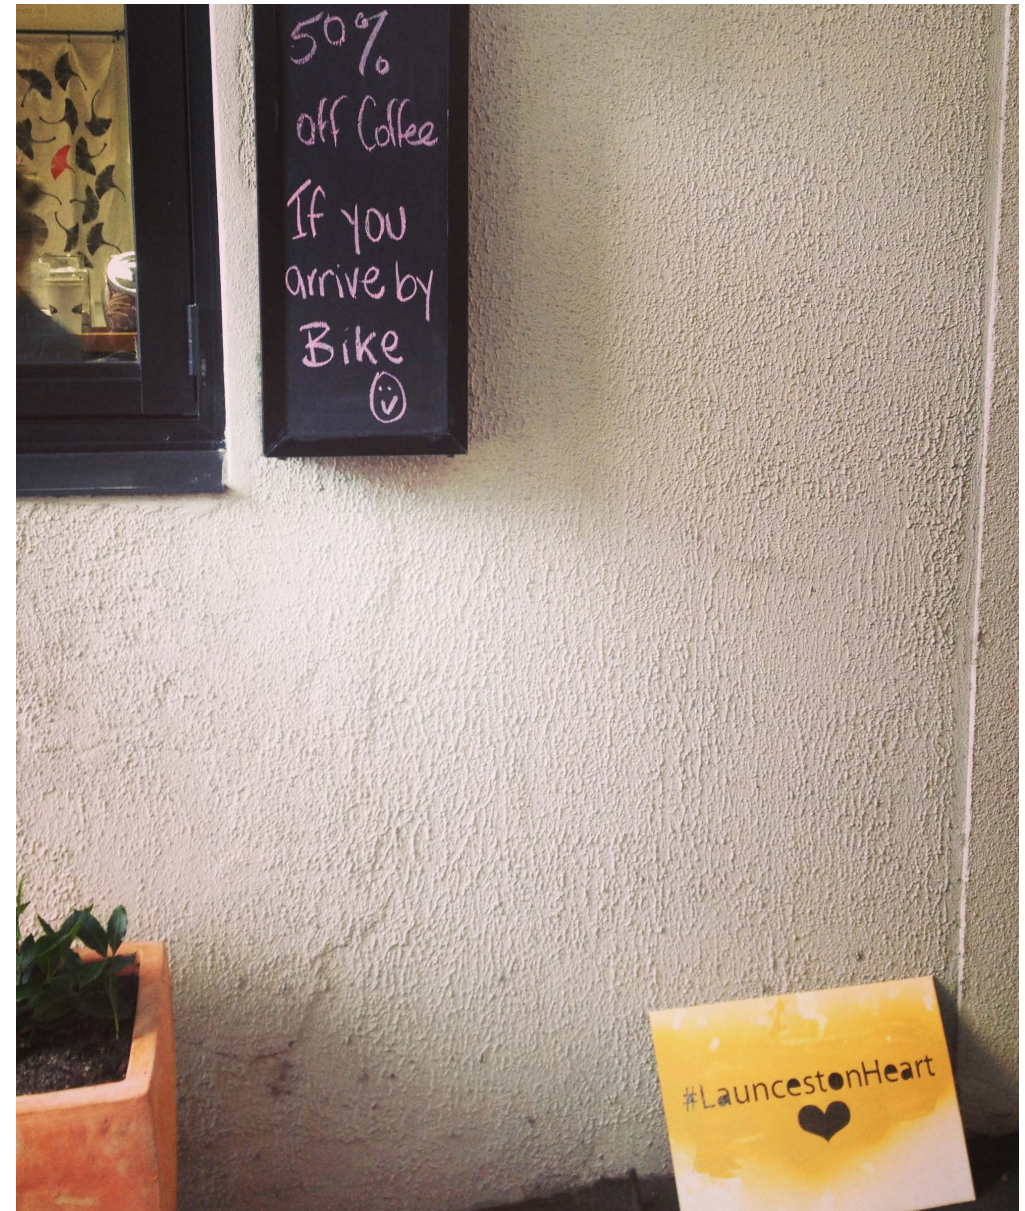 50%
off Coffee
If you
arrive by
Bike
#LauncestonHeart